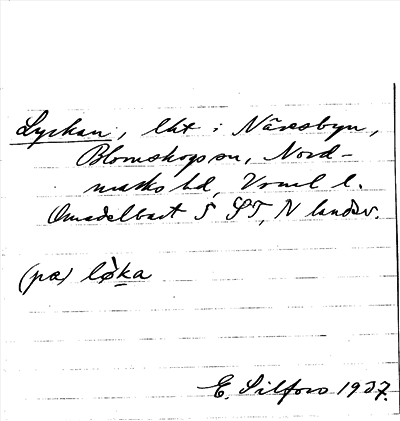 Lyckan, lht i Näresbyn,
Blomskogs sn, Nord-
marks hd, Vrml l.
Omedelbart S ST, N landsv.
(pæ) lø̀ka
E. Silfors 1937.